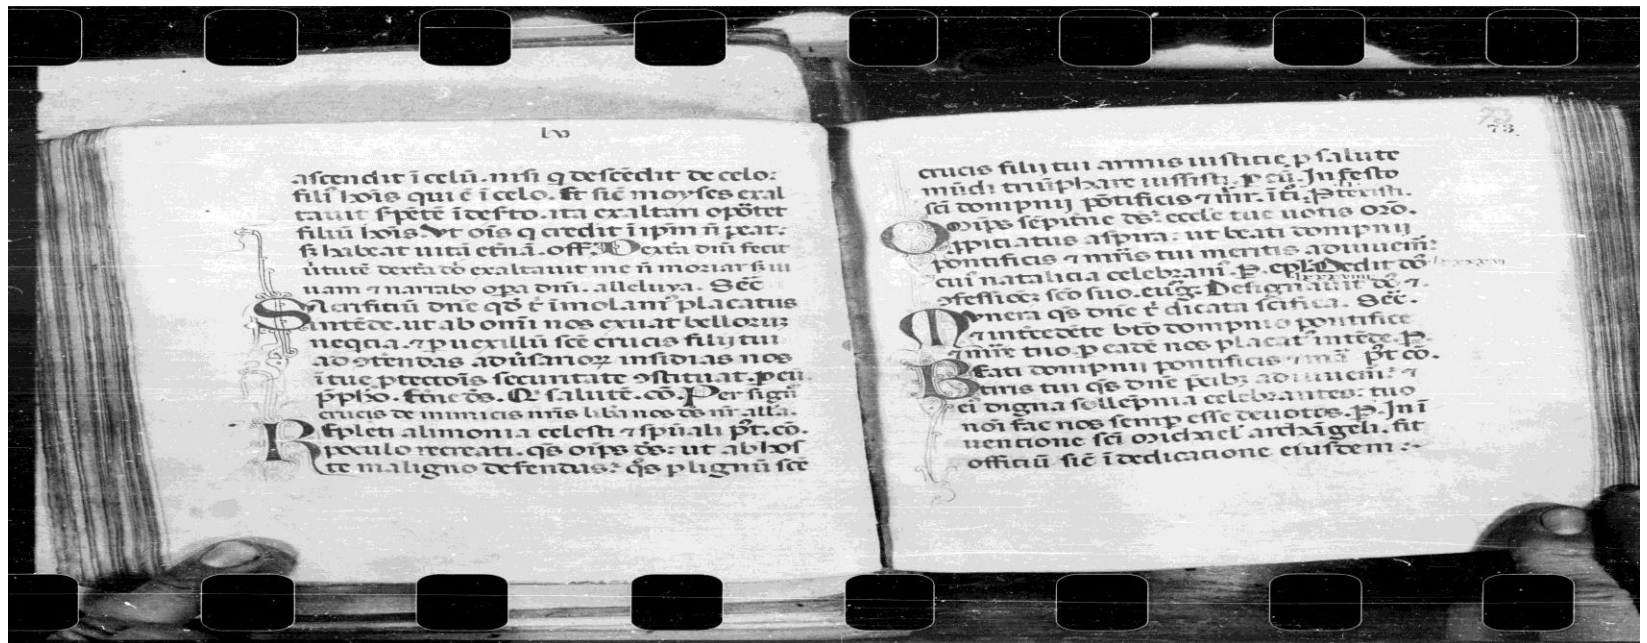 lv
ascendit ĩ celũ. nisi q̇ descẽdit de celo:
filiꝰ hoĩs qui ẽ ĩ celo. Et sic̃ moyses exal
tauit ſpẽtẽ ĩ deſto. ita exaltari opõtet
filiũ hoĩs. Vt oĩs q credit ĩ ip̃m ñ ꝑeat:
sꝫ habeat uitã etñã. off. Dextã dñi fecit
ũtutẽ dextã dõ exaltauit me ñ moriar sꝫ ui
uam ⁊ narrabo opa dñi. alleluya. Sec̃
Sacrificiũ dñe qd̃ t̃ ĩmolamꝰ placatus
intẽde. ut ab om̃i nos exuat belloruꝫ
neq̃cia. ⁊ ꝑ uexillũ scẽ crucis filij tui
ad ꝯtẽndas adũsarioꝝ insidias nos
ĩ tue ꝓtectoĩs securitate ꝯstituat. ꝑ eũ.
p̃pho. Etñe dẽs. Qꝰ salutẽ. cõ. Per signũ
crucis de inimicis ñris liƀa nos dẽs nr̃ alla.
Repleti alimonia celesti ⁊ spũali p̃t. cõ.
poculo recreati. qs̃ oĩps dẽs: ut ab hos
te maligno defendas: qs̃ ꝑ lignũ scẽ
73
73.
crucis filij tui armis iusticie ꝑ salute
mũdi triũphare iussisti. ꝑ eũ. In festo
sc̃i dompnij põtificis ⁊ m̃r. ĩt̃. Ptexisti.
Oĩps sẽpit̃ne dẽs: ecc̃le tue uotis orõ.
ꝓpiciatus aspira: ut beati dompnij
pontificis ⁊ m̃ris tui meritis adiuuem̃:
cuiꝰ natalicia celebramꝰ. P. epl̃a Dedit dõ
ꝯfessiõeꝫ scõ suo. euãg̃. Designauit dẽ ⁊.
Munera qs̃ dñe t̃ dicata sc̃ifica. Sec̃.
⁊ int̃cedẽte bt̃o dompnio pontifice
⁊ m̃re tuo. ꝑ eadẽ nos placatꝰ intẽde. P.
Beati dompnij pontificis ⁊ mã p̃t cõ.
tiris tui qs̃ dñe p̃cibꝫ adiuuem̃: ⁊
eiꝰ digna sollẽpnia celebrantes: tuo
noĩ fac nos semꝑ esse deuotos. P. In ĩ
uentione sc̃i michael' archãgeli. fit
officiũ sic̃ ĩ dedicatione eiusdem :~